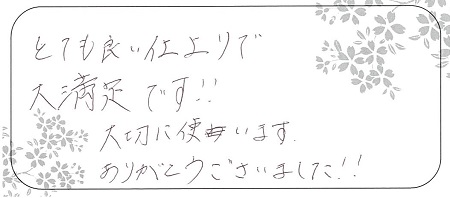 とても良い仕上りで
大満足です!!
大切に使います.
ありがとうございました!!